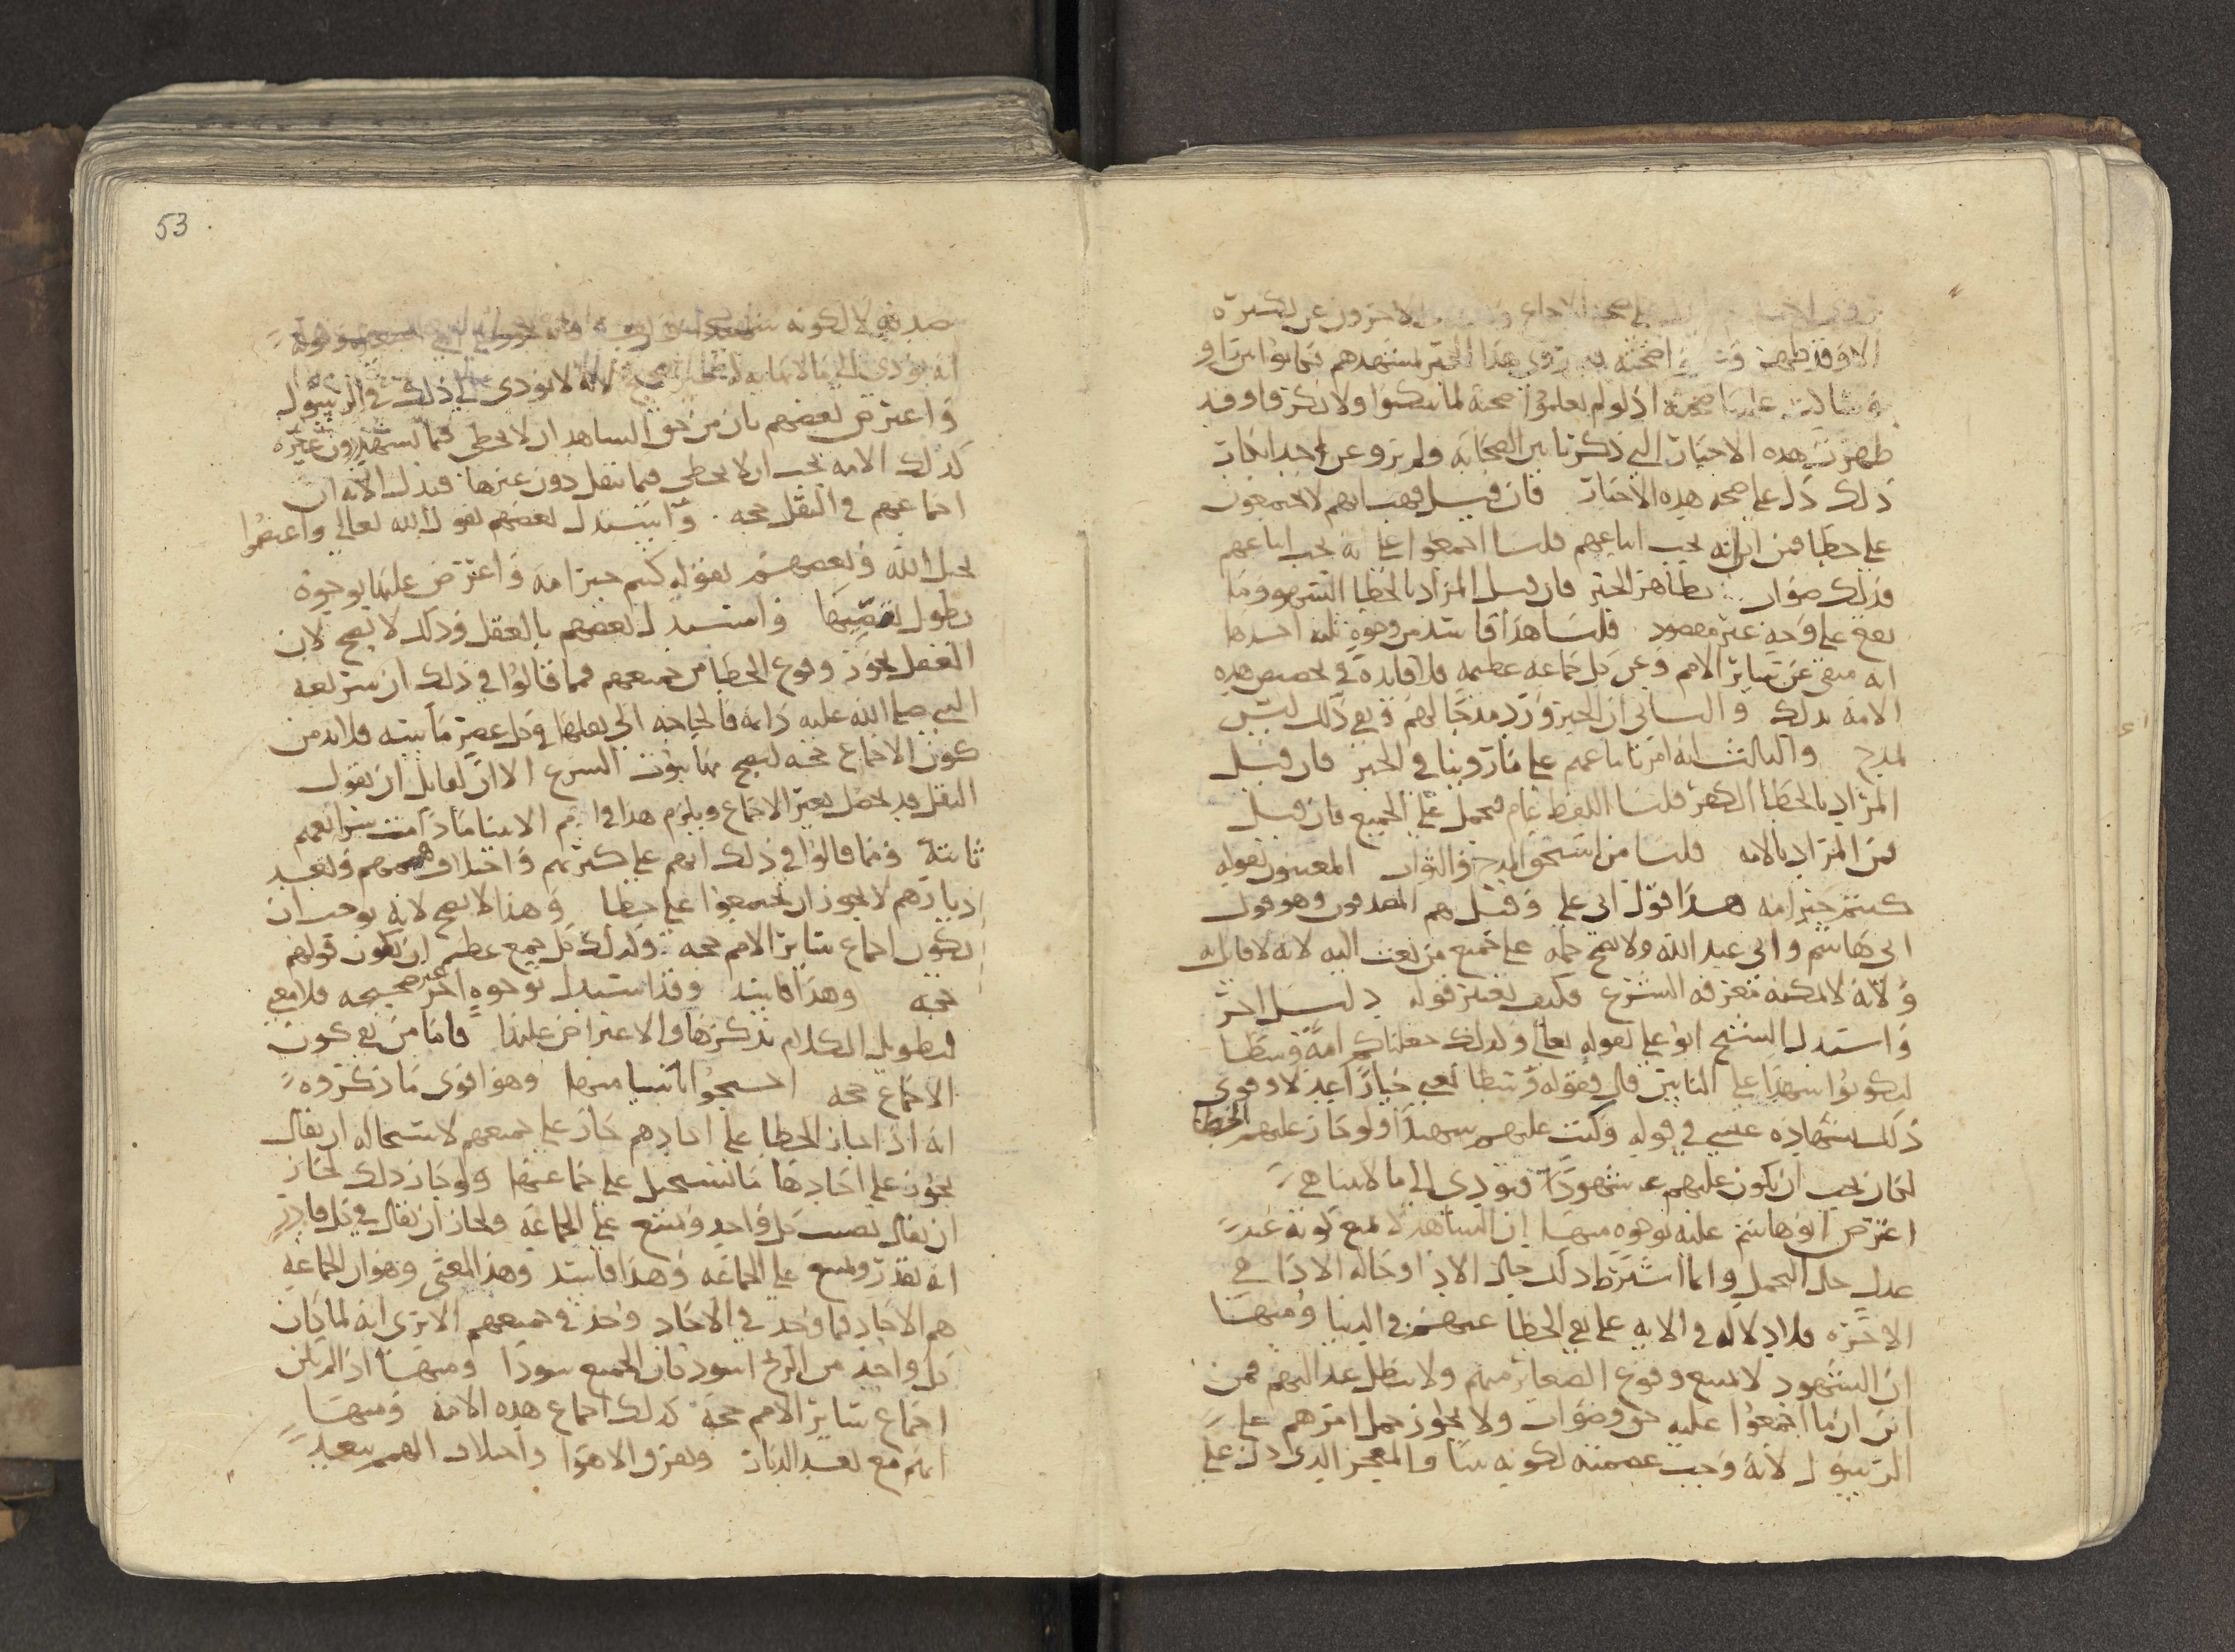 الاخرون عن نكيره
هذا الخبر لمشهدهم فكانوا بين راو
اذ لو لم يعلموا صحته لما سكتوا ولا نكرة فاو قد
ظهرت هذه الاخبار التي ذكرنا بين الصحابة ولم يرو عن احد انكار
ذلك دل على صحة هذه الاخبار فان قيل فهب انهم لا يجتمعون
على خطا فمن اين انه يجب اتباعهم قلنا اجمعوا على انه يجب اتباعهم
فذلك صواب بظاهر الخبر فان قيل المراد بالخطا السهو وما
يقع على وجه غير مقصود قلنا هذا فاسد من وجوه ثلثه احدها
انه منفى عن سائر الامم وعن كل جماعه عظيمه فلا فايده في تخصيص هذه
الامه بذلك والثاني ان الخبر ورد مدحا لهم ونفي ذلك ليس
بمدح والثالث انه امرنا باتباعهم على ما روينا في الخبر فان قيل
المراد بالخطا الكفر قلنا اللفظ عام فيحمل على الجميع فان قيل
فمن المراد بالامه قلنا من استحق المدح والثواب المعنيون بقوله
كنتم خير امه هذا قول ابي علي وقيل هم المصدقون وهو قول
ابي هاشم وابي عبد الله ولا يصح حمله على جميع من بعث اليه لانه لا قايل به
ولانه لا يمكنه معرفه الشرع فكيف يعتبر قوله دليل اخر
واستدل الشيخ ابو علي بقوله تعالى وكذلك جعلناكم امة وسطا
لتكونوا شهدا على الناس قال وقوله وسطا يعني خيارا عدلا وقوى
ذلك بشهاده عيسى في قوله وكنت عليهم شهيدا ولو جاز عليهم الخطا
لكان يجب ان يكون عليهم شهودا فيودي الى ما لا يتناهى
اعترض ابو هاشم عليه بوجوه منها ان الشاهد لا يمنع كونه غير
عدل حال التحمل وانما اشترط ذلك حال الادا وحاله الادا في
الاخره فلا دلاله في الايه على نفي الخطا عنهم في الدنيا ومنها
ان الشهود لا يمنع وقوع الصغاير منهم ولا يبطل عدالتهم فمن
اين ان ما اجمعوا عليه حق وصواب ولا يجوز حمل امرهم على
الرسول لانه وجب عصمته لكونه نبيا والمعجز الذي دل على
53
صدقه لا لكونه
انه يودي الى ما لا نهايه لانه لا يودي الى ذلك في الرسول
واعترض بعضهم بان من حق الشاهد ان لا يخطى فيما يشهد دون غيره
كذلك الامه يجب ان لا يخطى فيما تنقل دون غيرها فتدل الايه ان
اجماعهم في النقل حجه واستدل بعضهم بقول الله تعالى واعتصموا
بحبل الله وبعضهم بقوله كنتم خير امه واعترض عليها بوجوه
يطول تقصيها واستدل بعضهم بالعقل وذلك لا يصح لان
العقل يجوز وقوع الخطا من جميعهم فمما قالوا في ذلك ان شريعه
النبي صلى الله عليه دايمه فالحاجه الى نقلها في كل عصر ماسه فلا بد من
كون الاجماع حجه ليصح بها ثبوت الشرع الا ان لقايل ان يقول
النقل قد يحصل بغير الاجماع ويلزم هذا في امم الانبيا ما دامت شرائعهم
ثابتة ومما قالوا في ذلك انهم على كثرتهم واختلاف هممهم وبعد
ديارهم لا يجوز ان يجتمعوا على خطا وهذا لا يصح لانه يوجب ان
يكون اجماع سائر الامم حجه وكذلك كل جمع عظيم ان يكون قولهم
حجه وهذا فاسد وقد استدل بوجوه اخر غير صحيحه فلا معنى
لتطويل الكلام بذكرها والاعتراض عليها فاما من نفى كون
الاجماع حجه احتجوا باشيا منها وهو اقوى ما ذكروه
انه اذا جاز الخطا على احادهم جاز على جميعهم لاستحاله ان يقال
يجوز على احادها ما يستحيل على جماعتها ولو جاز ذلك لجاز
ان يقال يصيب كل واحد ويمتنع على الجماعه ولجاز ان يقال في كل قادر
انه يقدر ويمتنع على الجماعه وهذا فاسد وهذا المعنى وهو ان الجماعه
هم الاحاد فما وجد في الاحاد وجد في جميعهم الا ترى انه لما كان
كل واحد من الزنج اسود كان الجميع سودا ومنها اذا لم يكن
اجماع سائر الامم حجه كذلك اجماع هذه الامه ومنها
انهم مع بعد الديار وتفرق الاهوا واختلاف الهمم يبعد